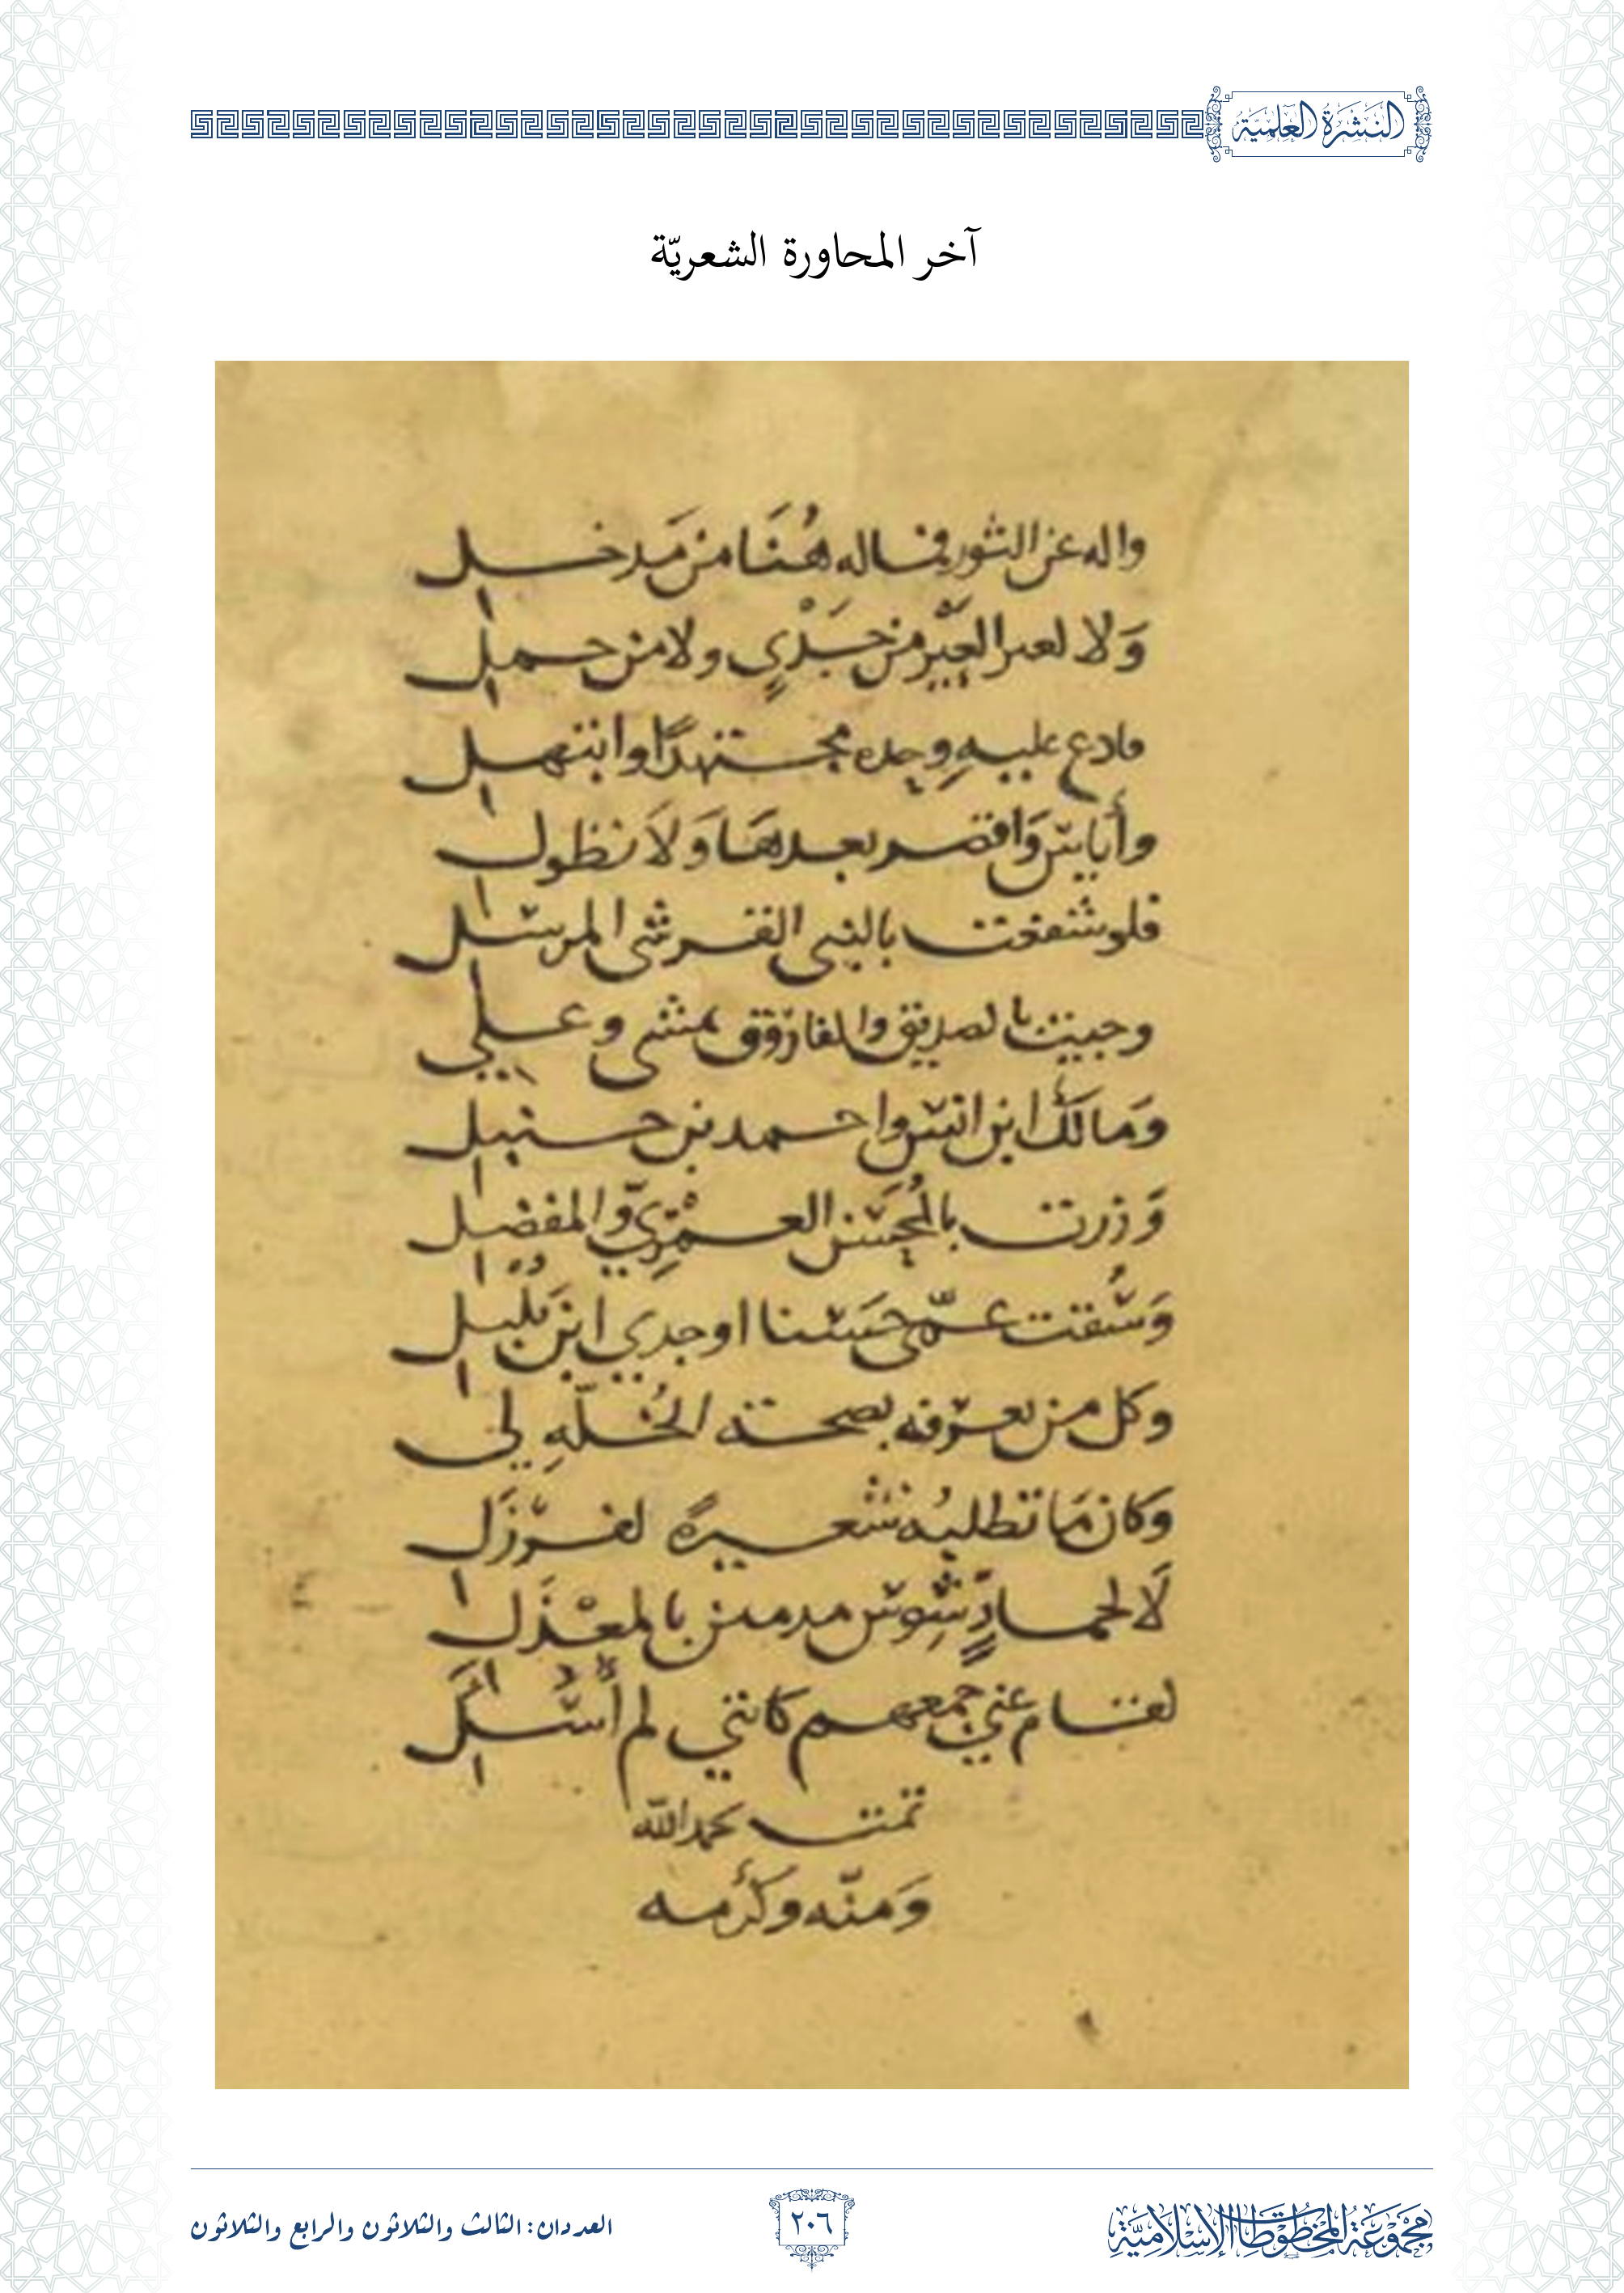 النشرة العلمية
آخر المحاورة الشعريّة
واله عن الثور فماله هُنَا من مَدخل
وَلا لعير العَيْر من جَدْيٍ ولا من حمل
فادع عليهِ وحده مجتهدًا وابتهل
وأيايس وَاقصر بعدهَا وَلاَ تطول
فلو شفعت بالنبى القرشى المرسل
وجيت بالصديق والفاروق ثمتى وعلي
وَمالكَ ابن انس واحمد بن حنبل
وَزرت بالمُحَسَن العمْرِيّ والمفضل
وَسُقت عمّى حَسَنا او جدي ابن بُلْبل
وكل من يعرفه بصحته الخُلّهِ لي
وَكان مَا تطلبُه شعيرةً لغرزَل
لَا لحمادٍ شِوس مدمن بالمعْذَل
لقام عني جمعهم كانني لم أُسْأَل
تمت بحمد الله
وَمنّه وكرَمه
مجموعة المخطوطات الإسلامية
٢٠٦
العددان: الثالث والثلاثون والرابع والثلاثون